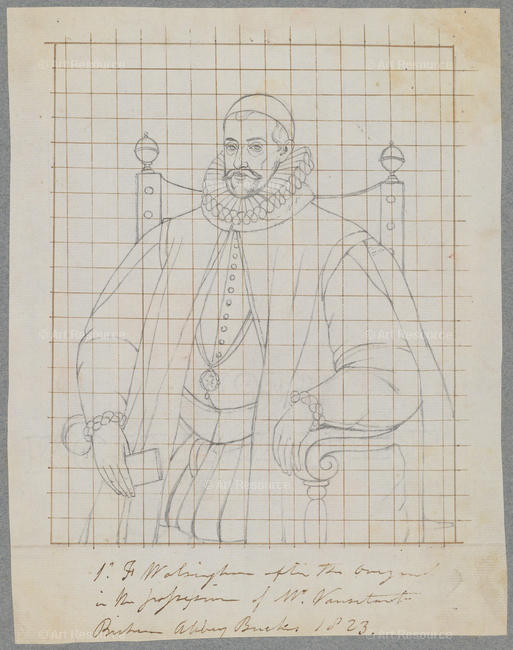 © Art Resource
© Art Resource
© Art Resource
© Art Resource
© Art Resource
© Art Resource
© Art Resource
Sr Fr Walsingham after the Original
in the possession of Mr. Vansittart
Bisham Abbey Bucks. 1823.